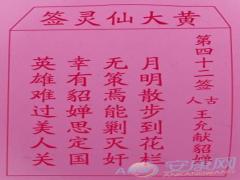 黄大仙灵签
第四十二签
古人 王允献貂蝉
月明散步到花栏
无策焉能剿灭奸
幸有貂婵思定国
英雄难过美人关